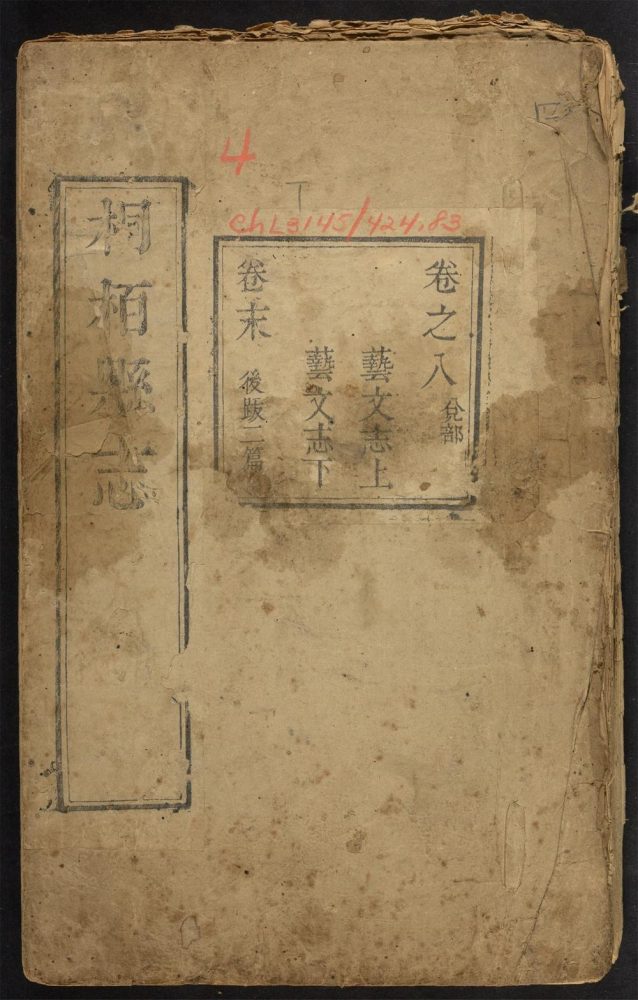 4
ChL3145/424.83
卷之八 兌部
藝文志上
藝文志下
卷末 後跋二篇
桐栢縣志